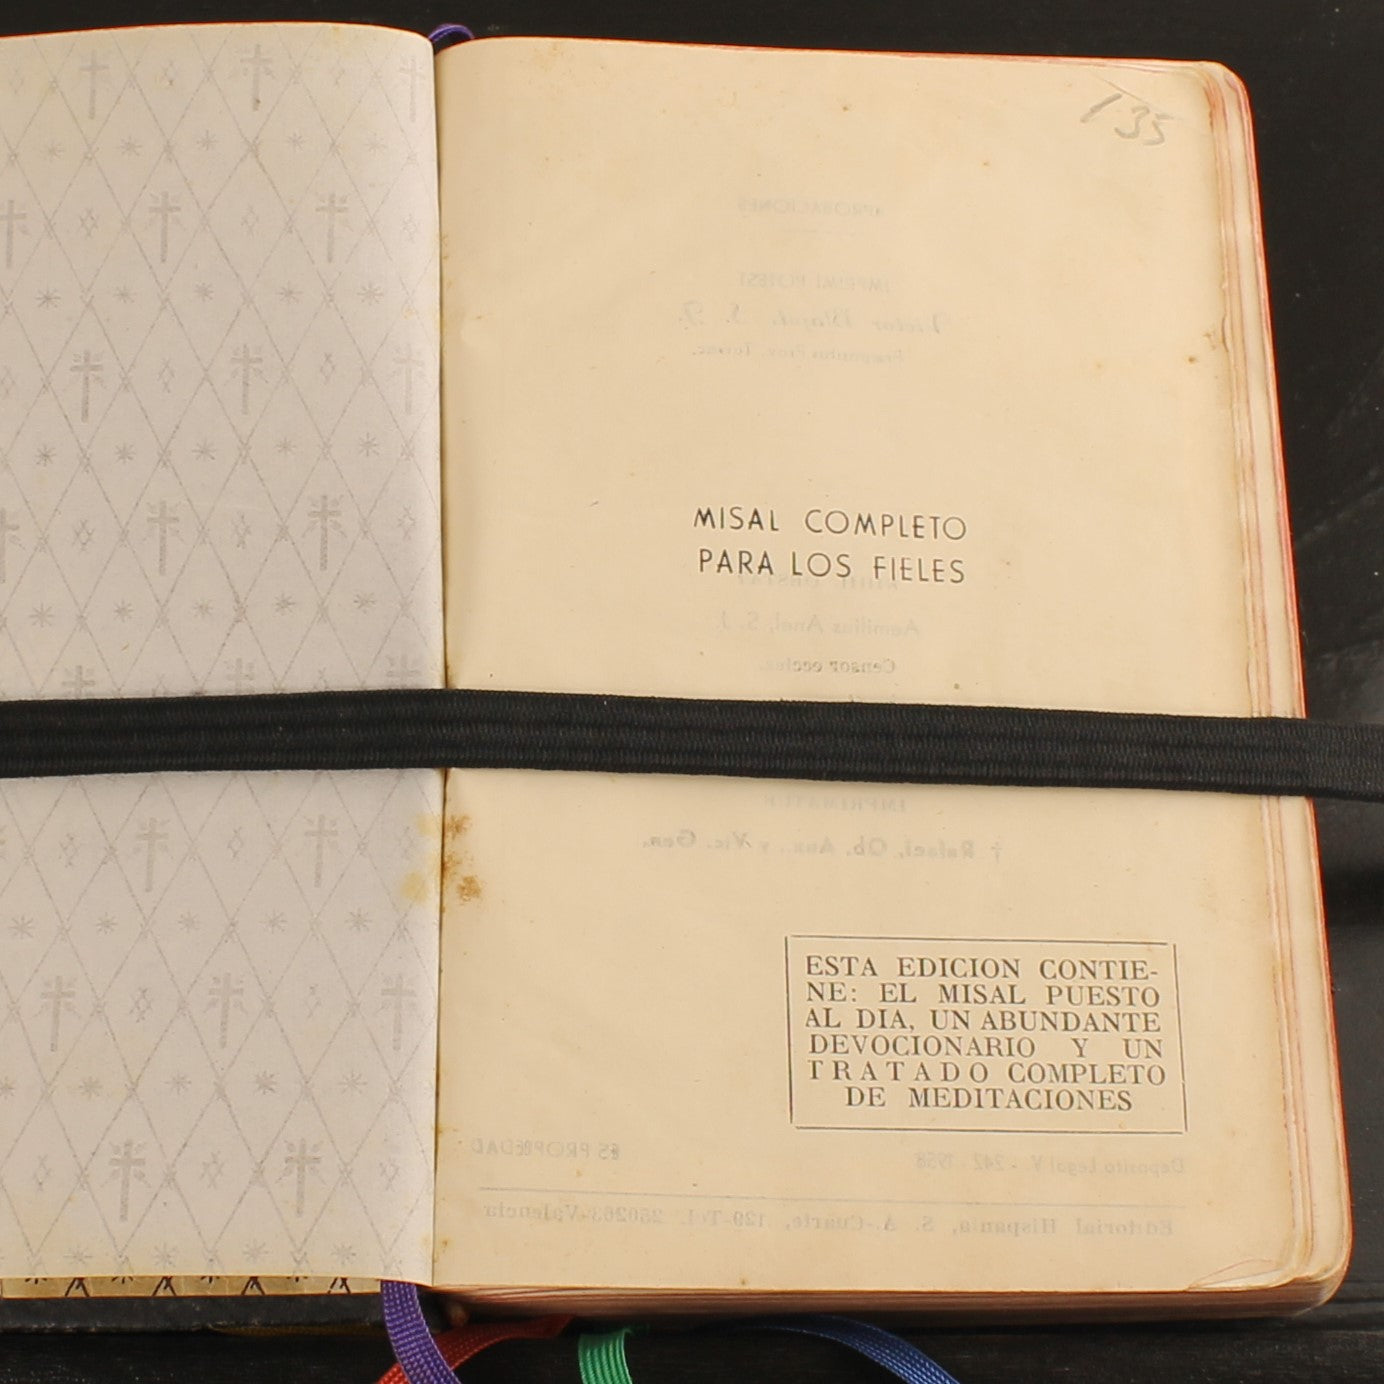 135
MISAL COMPLETO
PARA LOS FIELES
ESTA EDICION CONTIE-
NE: EL MISAL PUESTO
AL DIA, UN ABUNDANTE
DEVOCIONARIO Y UN
TRATADO COMPLETO
DE MEDITACIONES